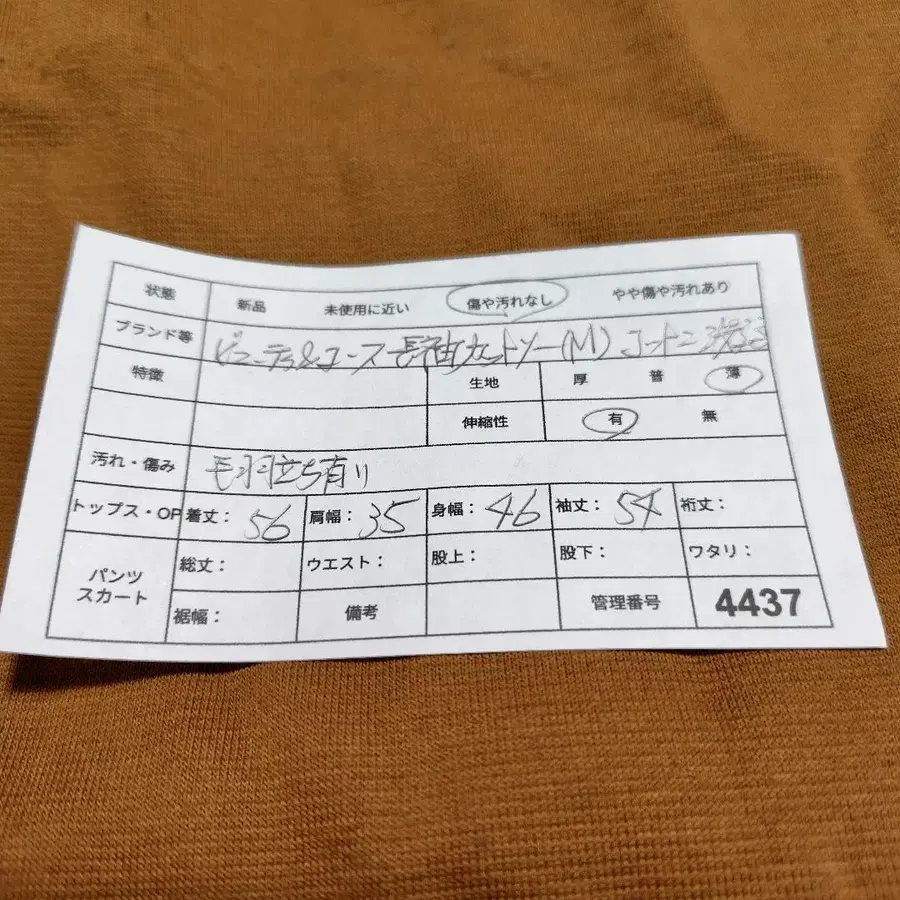 状態 新品 未使用に近い 傷や汚れなし やや傷や汚れあり
ブランド等 ビューティ&ユース 長袖カットソー(M) コットン
特徴 生地 厚 普 薄
伸縮性 有 無
汚れ・傷み 毛羽立ち有り
トップス・OP 着丈: 56 肩幅: 35 身幅: 46 袖丈: 54 裄丈:
パンツ スカート 総丈: ウエスト: 股上: 股下: ワタリ:
裾幅: 備考 管理番号 4437